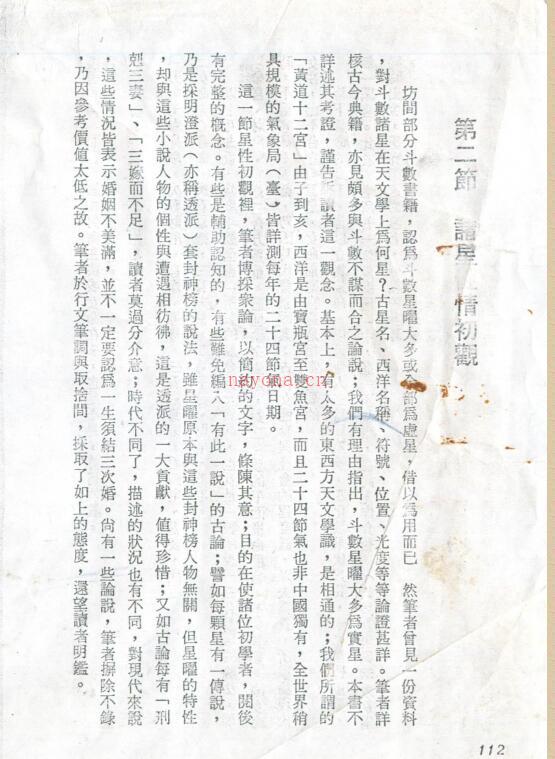 第二節 諸星 情初觀
坊間部分斗數書籍，認爲斗數星曜大多或全部爲虛星，借以爲用而已 然筆者曾見一份資料
，對斗數諸星在天文學上爲何星？古星名、西洋名稱、符號、位置、光度等等論證甚詳。筆者詳
核古今典籍，亦見頗多與斗數不謀而合之論說；我們有理由指出，斗數星曜大多爲實星。本書不
詳述其考證，謹告 讀者這一觀念。基本上，有太多的東西方天文學識，是相通的；我們所謂的
「黃道十二宮」由子到亥，西洋是由寶瓶宮至雙魚宮，而且二十四節氣也非中國獨有，全世界稍
具規模的氣象局（臺）皆詳測每年的二十四節氣日期。
這一節星性初觀裡，筆者博採衆論，以簡易的文字，條陳其意；目的在使諸位初學者，閱後
有完整的概念。有些是輔助認知的，有些難免編入「有此一說」的古論；譬如每顆星有一傳說，
乃是採明澄派（亦稱透派）套封神榜的說法，雖星曜原本與這些封神榜人物無關，但星曜的特性
，却與這些小說人物的個性與遭遇相彷彿，這是透派的一大貢獻，值得珍惜；又如古論每有「刑
剋三妻」、「三嫁而不足」，讀者莫過分介意；時代不同了，描述的狀況也有不同，對現代來說
，這些情況皆表示婚姻不美滿，並不一定要認爲一生須結三次婚。尙有一些論說，筆者摒除不錄
，乃因參考價值太低之故。筆者於行文筆調與取捨間，採取了如上的態度，還望讀者明鑑。
112
nayona.cn